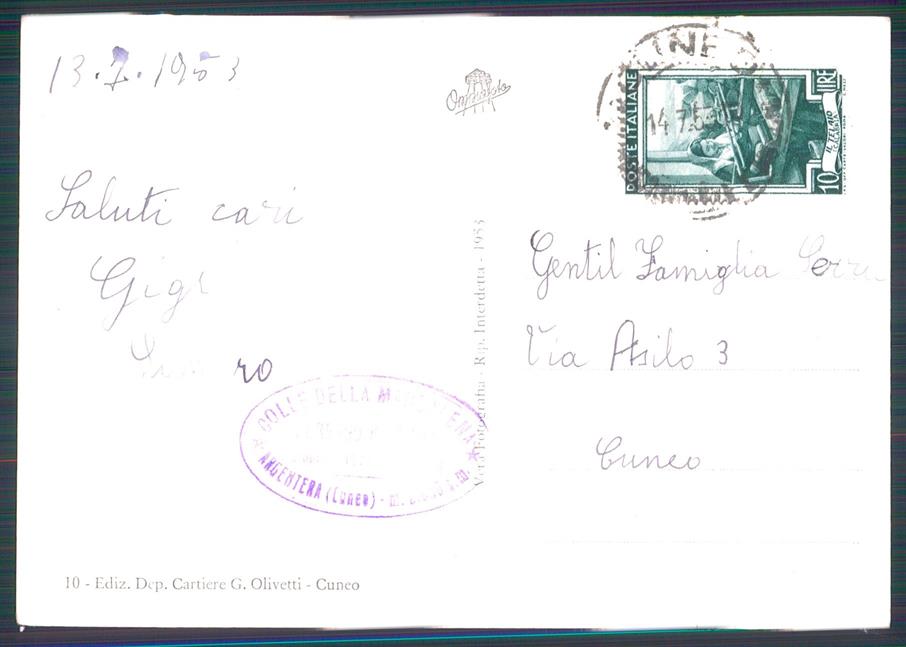 13.7.1953
Saluti cari
Gigi
COLLE DELLA MADDALENA
ARGENTERA (Cuneo) - m.
10 - Ediz. Dep. Cartiere G. Olivetti - Cuneo
Vera Fotografia - Rip. Interdetta - 1953
POSTE ITALIANE
LIRE
10
IL TELAIO
14 7.5
Gentil Famiglia
Via Asilo 3
Cuneo